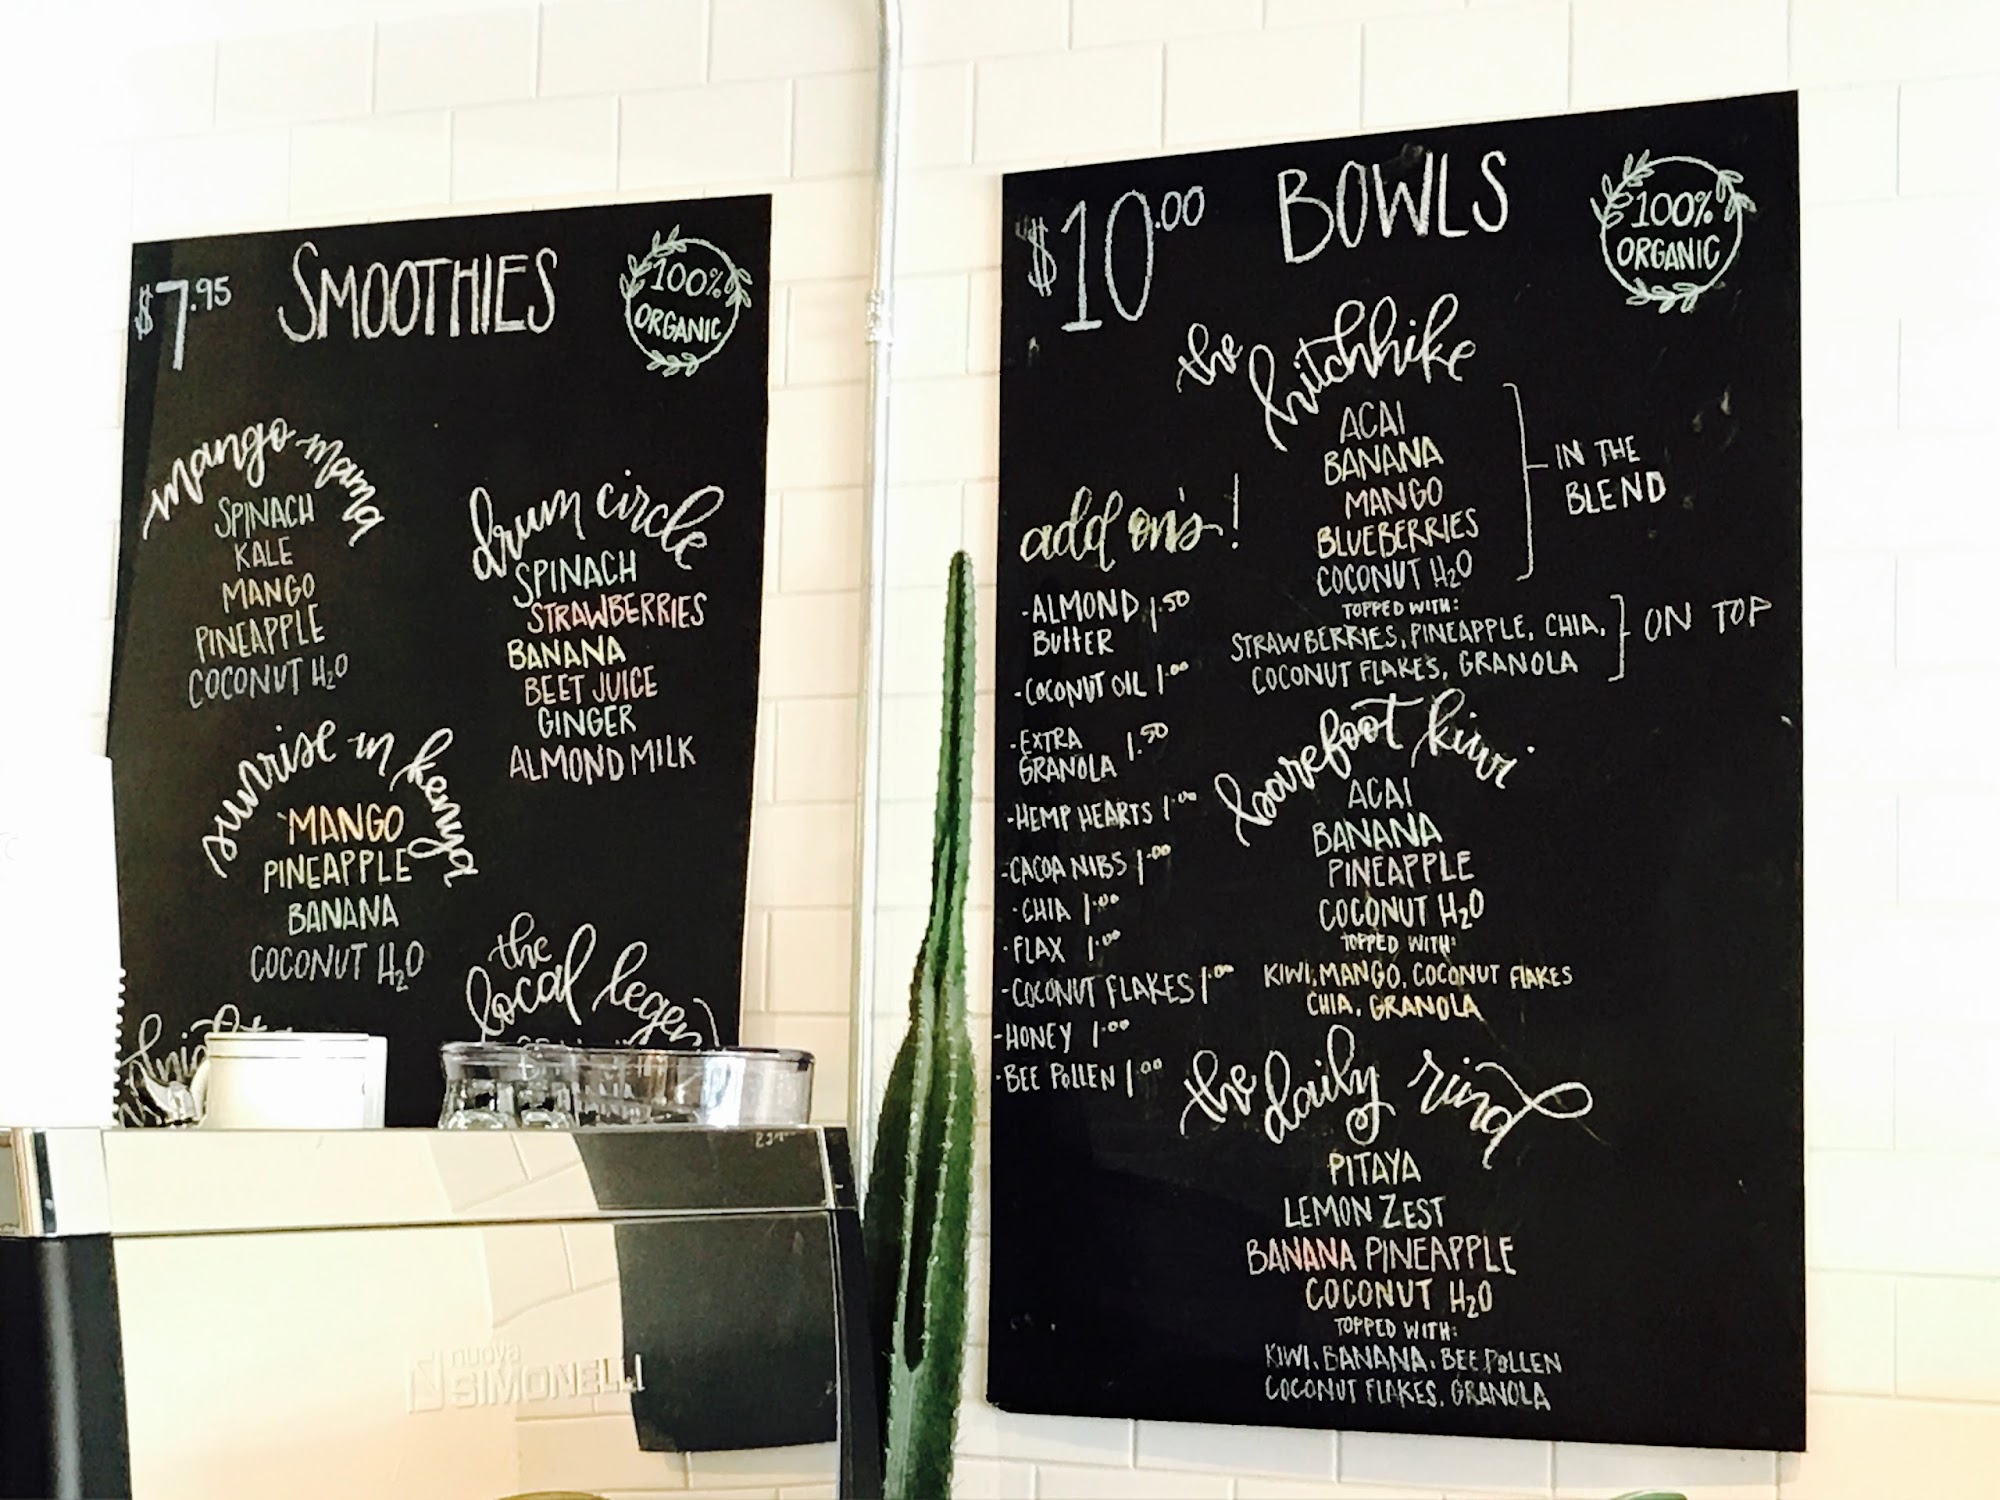 $7.95
SMOOTHIES
100%
ORGANIC
mango mama
SPINACH
KALE
MANGO
PINEAPPLE
COCONUT H2O
drum circle
SPINACH
STRAWBERRIES
BANANA
BEET JUICE
GINGER
ALMOND MILK
sunrise in kenya
MANGO
PINEAPPLE
BANANA
COCONUT H2O
the
local legen
$10.00
BOWLS
100%
ORGANIC
the hitchhike
ACAI
BANANA
MANGO
BLUEBERRIES
COCONUT H2O
IN THE
BLEND
TOPPED WITH:
STRAWBERRIES, PINEAPPLE, CHIA,
COCONUT FLAKES, GRANOLA
ON TOP
add on's!
-ALMOND 1.50
BUTTER
-COCONUT OIL 1.00
-EXTRA 1.50
GRANOLA
-HEMP HEARTS 1.00
-CACOA NIBS 1.00
-CHIA 1.00
-FLAX 1.00
-COCONUT FLAKES 1.00
-HONEY 1.00
-BEE POLLEN 1.00
barefoot kiwi
ACAI
BANANA
PINEAPPLE
COCONUT H2O
TOPPED WITH:
KIWI, MANGO, COCONUT FLAKES
CHIA, GRANOLA
the daily rind
PITAYA
LEMON ZEST
BANANA PINEAPPLE
COCONUT H2O
TOPPED WITH:
KIWI, BANANA, BEE POLLEN
COCONUT FLAKES, GRANOLA
nuova
SIMONELLI